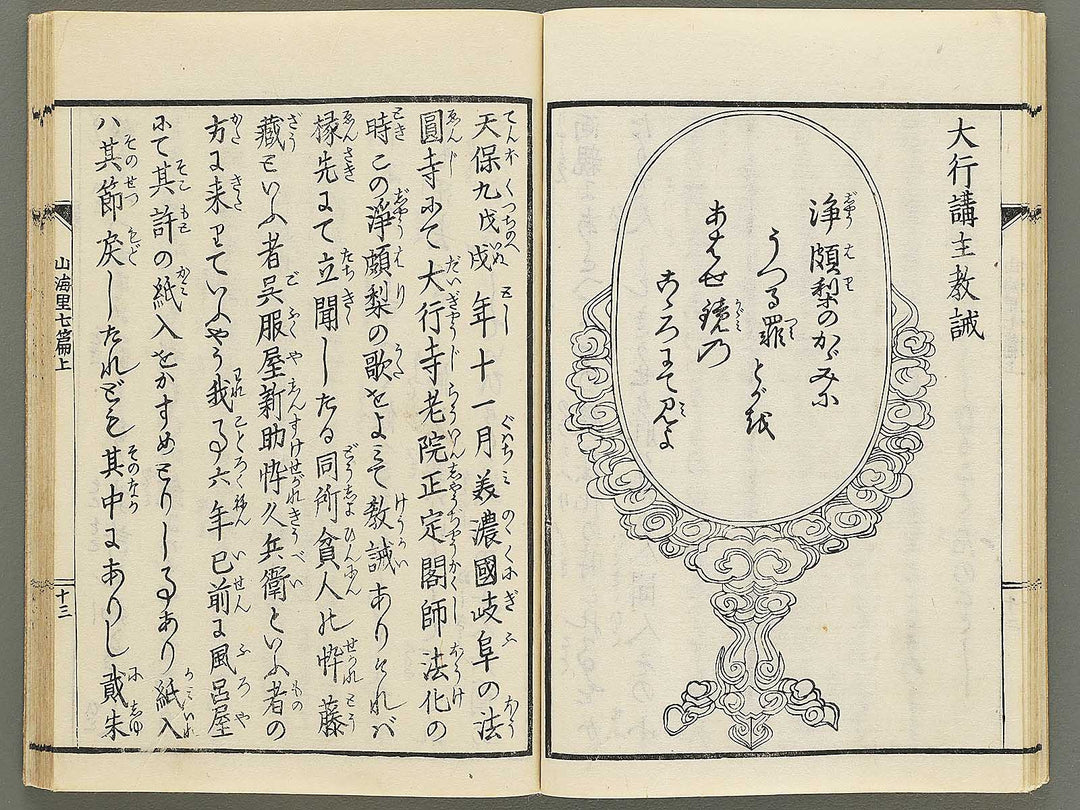 大行講主教誡
浄頗梨のかゞみに
うつる罪とが越
あらせ鏡乃
こゝろにて見よ
天保九戊戌年十一月美濃國岐阜の法
圓寺にて大行寺老院正定閣師法化の
時この浄頗梨の歌をよみて教誡ありそれバ
椽先にて立聞したる同所貧人の忰藤
藏といふ者呉服屋新助忰久兵衛といふ者の
方に来りていふやう我等六年已前に風呂屋
にて其許の紙入をかすめとりし事あり紙入
ハ其節戻したれども其中にありし貳朱
山海里七篇上
十三